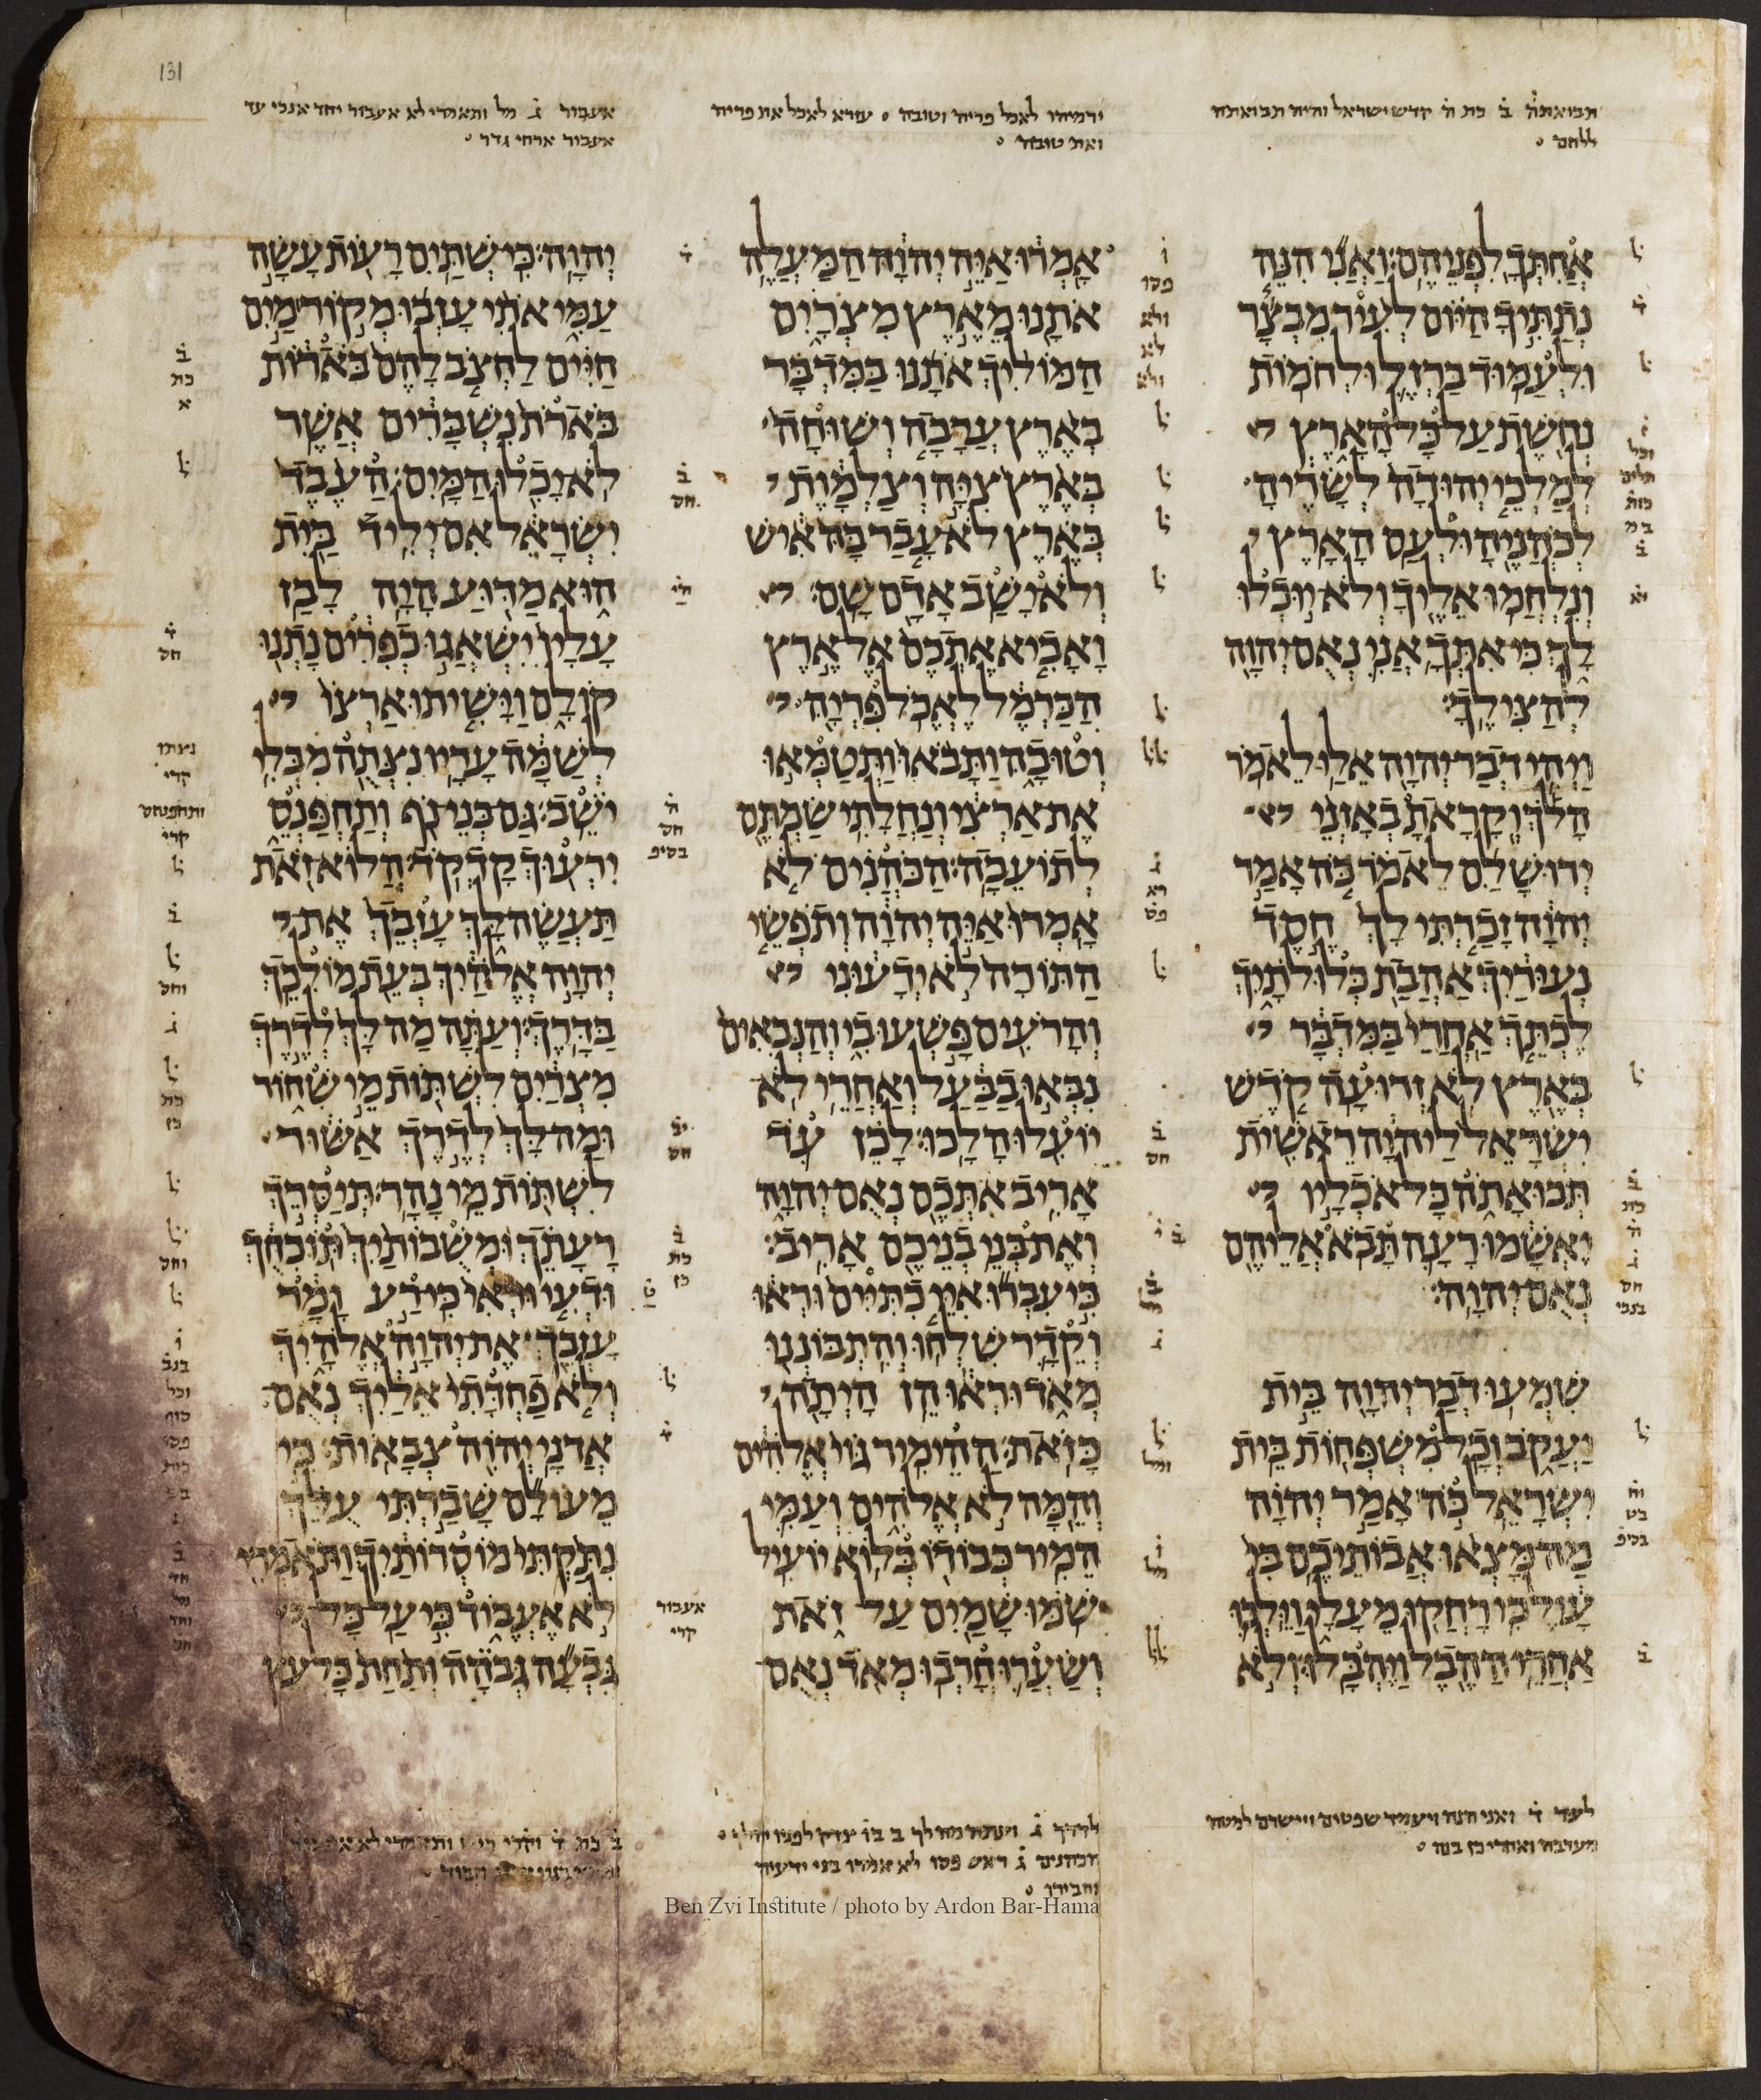 תבואתה ב֗ כת ה֗ קדש ישראל והיה תבואתה
ללחם
ירמיהו לאכל פריה וטובה עזרא לאכל את פריה
ואת טובה
אעבור ג֗ מל ותאמרי לא אעבור יחד אנכי עד
אעבור ארחי גדר
אֲחִתְּךָ לִפְנֵיהֶם׃ וַאֲנִי הִנֵּה
נְתַתִּיךָ הַיּוֹם לְעִיר מִבְצָר
וּלְעַמּוּד בַּרְזֶל וּלְחֹמוֹת
נְחֹשֶׁת עַל כָּל הָאָרֶץ
לְמַלְכֵי יְהוּדָה לְשָׂרֶיהָ
לְכֹהֲנֶיהָ וּלְעַם הָאָרֶץ
וְנִלְחֲמוּ אֵלֶיךָ וְלֹא יוּכְלוּ
לָךְ כִּי אִתְּךָ אֲנִי נְאֻם יְהוָה
לְהַצִּילֶךָ׃
וַיְהִי דְבַר יְהוָה אֵלַי לֵאמֹר
הָלֹךְ וְקָרָאתָ בְאָזְנֵי
יְרוּשָׁלִַם לֵאמֹר כֹּה אָמַר
יְהוָה זָכַרְתִּי לָךְ חֶסֶד
נְעוּרַיִךְ אַהֲבַת כְּלוּלֹתָיִךְ
לֶכְתֵּךְ אַחֲרַי בַּמִּדְבָּר
בְּאֶרֶץ לֹא זְרוּעָה׃ קֹדֶשׁ
יִשְׂרָאֵל לַיהוָה רֵאשִׁית
תְּבוּאָתֹה כָּל אֹכְלָיו
יֶאְשָׁמוּ רָעָה תָּבֹא אֲלֵיהֶם
נְאֻם יְהוָה׃
שִׁמְעוּ דְבַר יְהוָה בֵּית
יַעֲקֹב וְכָל מִשְׁפְּחוֹת בֵּית
יִשְׂרָאֵל׃ כֹּה אָמַר יְהוָה
מַה מָּצְאוּ אֲבוֹתֵיכֶם בִּי
עָוֶל כִּי רָחֲקוּ מֵעָלָי וַיֵּלְכוּ
אַחֲרֵי הַהֶבֶל וַיֶּהְבָּלוּ׃ וְלֹא
אָמְרוּ אַיֵּה יְהוָה הַמַּעֲלֶה
אֹתָנוּ מֵאֶרֶץ מִצְרָיִם
הַמּוֹלִיךְ אֹתָנוּ בַּמִּדְבָּר
בְּאֶרֶץ עֲרָבָה וְשׁוּחָה
בְּאֶרֶץ צִיָּה וְצַלְמָוֶת
בְּאֶרֶץ לֹא עָבַר בָּהּ אִישׁ
וְלֹא יָשַׁב אָדָם שָׁם׃
וָאָבִיא אֶתְכֶם אֶל אֶרֶץ
הַכַּרְמֶל לֶאֱכֹל פִּרְיָהּ
וְטוּבָהּ וַתָּבֹאוּ וַתְּטַמְּאוּ
אֶת אַרְצִי וְנַחֲלָתִי שַׂמְתֶּם
לְתוֹעֵבָה׃ הַכֹּהֲנִים לֹא
אָמְרוּ אַיֵּה יְהוָה וְתֹפְשֵׂי
הַתּוֹרָה לֹא יְדָעוּנִי
וְהָרֹעִים פָּשְׁעוּ בִי וְהַנְּבִאִים
נִבְּאוּ בַבַּעַל וְאַחֲרֵי לֹא
יוֹעִלוּ הָלָכוּ׃ לָכֵן עֹד
אָרִיב אִתְּכֶם נְאֻם יְהוָה
וְאֶת בְּנֵי בְנֵיכֶם אָרִיב׃
כִּי עִבְרוּ אִיֵּי כִתִּיִּים וּרְאוּ
וְקֵדָר שִׁלְחוּ וְהִתְבּוֹנְנוּ
מְאֹד וּרְאוּ הֵן הָיְתָה
כָּזֹאת׃ הַהֵימִיר גּוֹי אֱלֹהִים
וְהֵמָּה לֹא אֱלֹהִים וְעַמִּי
הֵמִיר כְּבוֹדוֹ בְּלוֹא יוֹעִיל׃
שֹׁמּוּ שָׁמַיִם עַל זֹאת
וְשַׂעֲרוּ חָרְבוּ מְאֹד נְאֻם
יְהוָה׃ כִּי שְׁתַּיִם רָעוֹת עָשָׂה
עַמִּי אֹתִי עָזְבוּ מְקוֹר מַיִם
חַיִּים לַחְצֹב לָהֶם בֹּארוֹת
בֹּארֹת נִשְׁבָּרִים אֲשֶׁר
לֹא יָכִלוּ הַמָּיִם׃ הַעֶבֶד
יִשְׂרָאֵל אִם יְלִיד בַּיִת
הוּא מַדּוּעַ הָיָה לָבַז׃
עָלָיו יִשְׁאֲגוּ כְפִרִים נָתְנוּ
קוֹלָם וַיָּשִׁיתוּ אַרְצוֹ
לְשַׁמָּה עָרָיו נִצְּתֻה מִבְּלִי
יֹשֵׁב׃ גַּם בְּנֵי נֹף וְתַחְפַּנְס
יִרְעוּךְ קָדְקֹד׃ הֲלוֹא זֹאת
תַּעֲשֶׂה לָּךְ עָזְבֵךְ אֶת
יְהוָה אֱלֹהַיִךְ בְּעֵת מוֹלִכֵךְ
בַּדָּרֶךְ׃ וְעַתָּה מַה לָּךְ לְדֶרֶךְ
מִצְרַיִם לִשְׁתּוֹת מֵי שִׁחוֹר
וּמַה לָּךְ לְדֶרֶךְ אַשּׁוּר
לִשְׁתּוֹת מֵי נָהָר׃ תְּיַסְּרֵךְ
רָעָתֵךְ וּמְשֻׁבוֹתַיִךְ תּוֹכִחֻךְ
וּדְעִי וּרְאִי כִּי רַע וָמָר
עָזְבֵךְ אֶת יְהוָה אֱלֹהָיִךְ
וְלֹא פַחְדָּתִי אֵלַיִךְ נְאֻם
אֲדֹנָי יְהוִה צְבָאוֹת׃ כִּי
מֵעוֹלָם שָׁבַרְתִּי עֻלֵּךְ
נִתַּקְתִּי מוֹסְרוֹתַיִךְ וַתֹּאמְרִי
לֹא אֶעֱבוֹד כִּי עַל כָּל
גִּבְעָה גְּבֹהָה וְתַחַת כָּל עֵץ
לעיר ד֗ ואני הנה ויעמד שפטים ויישרם למטה
מערבה ואחרי כן בנה
לדרך ג֗ ועתה מה לך ב בו֗ צדק לפניו יהלך
הכהנים ג֗ ראש פסו לא אמרו בני ידעיה
וחבירו
Ben Zvi Institute / photo by Ardon Bar-Hama
131